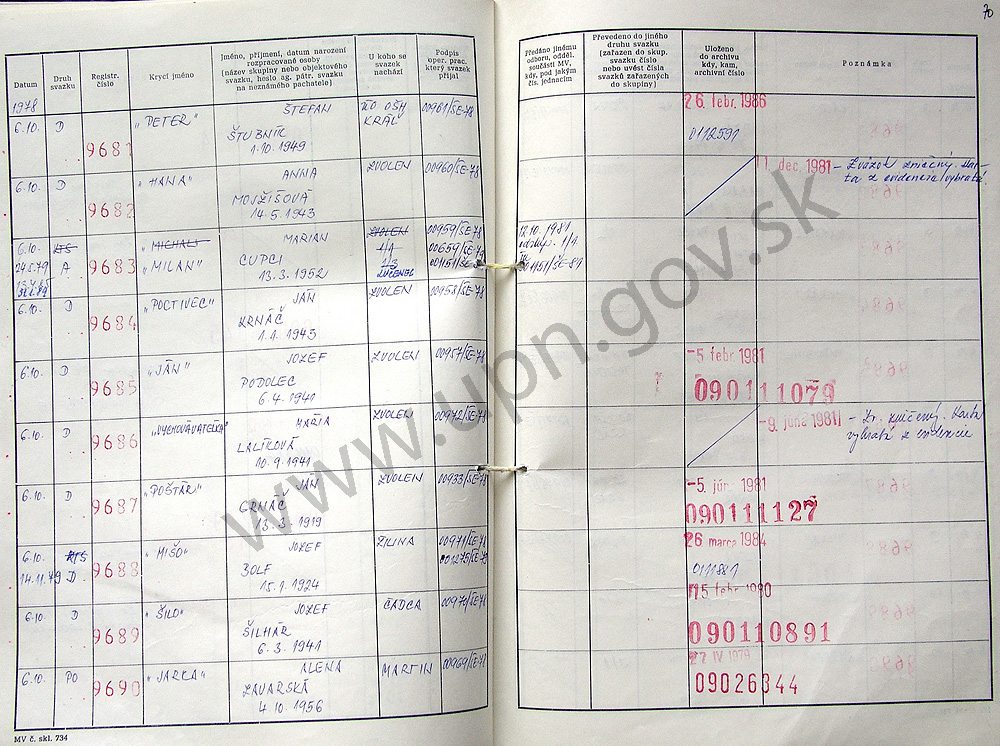 70
Datum
Druh svazku
Registr. číslo
Krycí jméno
Jméno, příjmení, datum narození
rozpracované osoby
(název skupiny nebo objektového
svazku, heslo ag. pátr. svazku
na neznámého pachatele)
U koho se
svazek
nachází
Podpis
oper. prac.
který svazek
přijal
Předáno jinému
odboru, odděl.
součásti MV,
kdy, pod jakým
čís. jednacím
Převedeno do jiného
druhu svazku
(zařazen do skup.
svazku číslo
nebo uvést čísla
svazků zařazených
do skupiny)
Uloženo
do archivu
kdy, kam,
archivní číslo
Poznámka
1978
6.10. D 9681 "PETER" ŠTEFAN
ŠTUBNIC
1.10.1949
KRÁĽ
00961/ŠE-78
26. febr. 1986
0112591
6.10. D 9682 "HANA" ANNA
MOJŽIŠOVÁ
14.5.1943
ZVOLEN 00960/ŠE-78
11. dec. 1981 - Zväzok zničený. Kar-
ta z evidencie vybratá.
6.10. KTS 9683 "MICHAL" MARIAN
A "MILAN" CUPCI
13.3.1952
ZVOLEN
1/1
1/3
LUČENEC
00959/ŠE-78
12.10.1981
1/1
6.10. D 9684 "POCTIVEC" JÁN
KRNÁČ
1.1.1943
ZVOLEN 00958/ŠE-78
6.10. D 9685 "JÁN" JOZEF
PODOLEC
6.4.1941
ZVOLEN 00957/ŠE-78
-5. febr. 1981
090111079
6.10. D 9686 "VYCHOVÁVATEĽKA" MÁRIA
LALÍKOVÁ
10.9.1941
ZVOLEN 00972/ŠE-78
-9. júna 1981 - Zv. zničený. Karta
vybratá z evidencie
6.10. D 9687 "POŠTÁR" JÁN
GRNÁČ
13.3.1919
ZVOLEN 00933/ŠE-78
-5. jún. 1981
090111127
6.10. KTS 9688 "MIŠO" JOZEF
14.11.79 D
ŽILINA 00971/ŠE-78
01275/ŠE-79
26 marca 1984
0111881
6.10. D 9689 "ŠILO" JOZEF
ŠILHÁR
6.3.1941
ČADCA 00970/ŠE-78
15 febr 1980
090110891
6.10. PO 9690 "JARKA" ALENA
ZAVARSKÁ
4.10.1956
MARTIN 00969/ŠE-78
27 IV 1979
09026344
MV č. skl. 734
www.upn.gov.sk